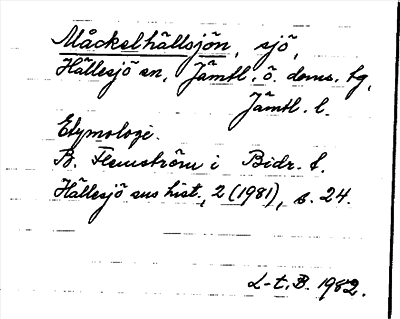 Måckelhällsjön, sjö,
Hällesjö sn, Jämtl. ö. doms. tg,
Jämtl. l.
Etymologi.
B. Flemström i Bidr. t.
Hällesjö sns hist., 2 (1981), s. 24.
L-t. B. 1982.